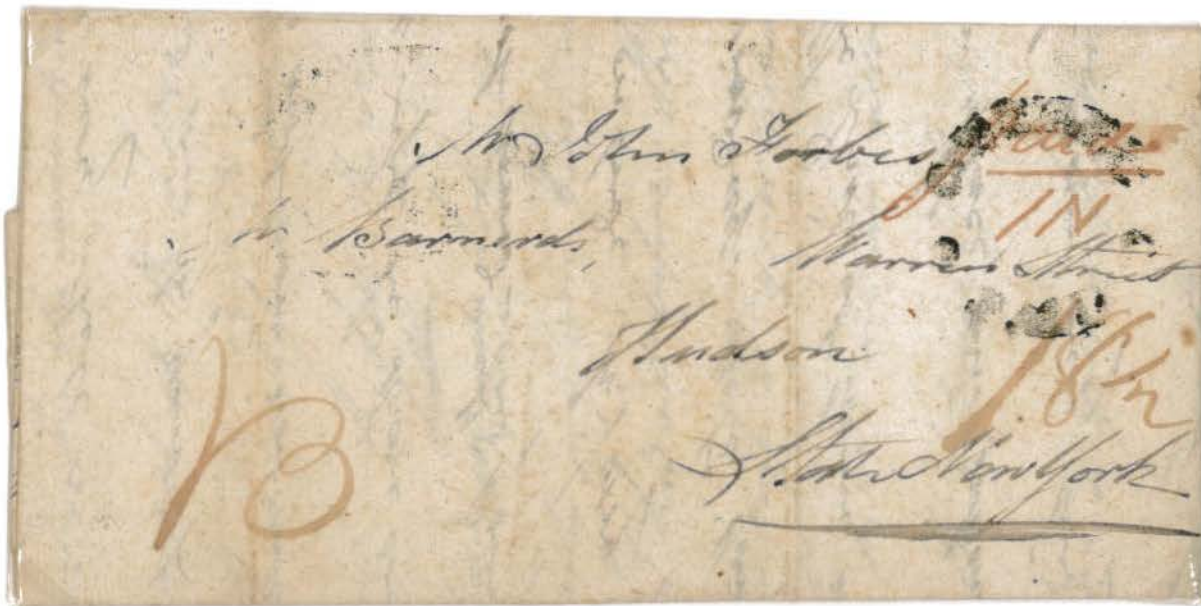 Mr John Forbes
Paid
1N
Mr Barnerds,
Warren Street
Hudson
18½
State New York